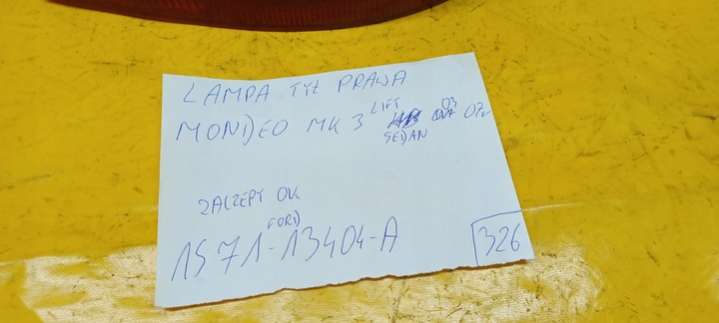 LAMPA TYŁ PRAWA
MONDEO MK 3 LIFT 03 07r
SEDAN
ZACZEPY OK
FORD
1S71-13404-A
326